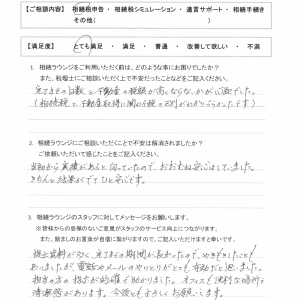 【ご相談内容】 相続税申告 ・ 相続税シミュレーション ・ 遺言サポート ・ 相続手続き
その他( )
【満足度】 とても満足 ・ 満足 ・ 普通 ・ 改善して欲しい ・ 不満
1. 相続ラウンジをご利用いただく前は、どのような事にお困りでしたか?
また、税理士にご相談いただく上で不安だったことなどをご記入ください。
完了までの日数と不動産の税額が高くならないかが心配でした。
(相続税と不動産取得に関わる税の区別がわかりづらかったです)
2. 相続ラウンジにご相談いただくことで不安は解消されましたか?
ご依頼いただいて感じたことをご記入ください。
当初から実績があると伺っていたので、おおむね安心はしていました。
きちんと結果がでてひと安心です。
3. 相続ラウンジのスタッフに対してメッセージをお願いします。
※皆様からの忌憚のないご意見がスタッフのサービス向上につながります。
また、励ましのお言葉が自信に繋がりますので、ご記入いただけますと幸いです。
提出資料が多く、完了までの期間が長かったので、やきもきしたことも
ありましたが、電話やメールのやりとりがとても有効だと思いました。
担当の方の指示が的確で助かりました。オフィスも便利な場所で
清潔感があります。今後ともよろしくお願いします。